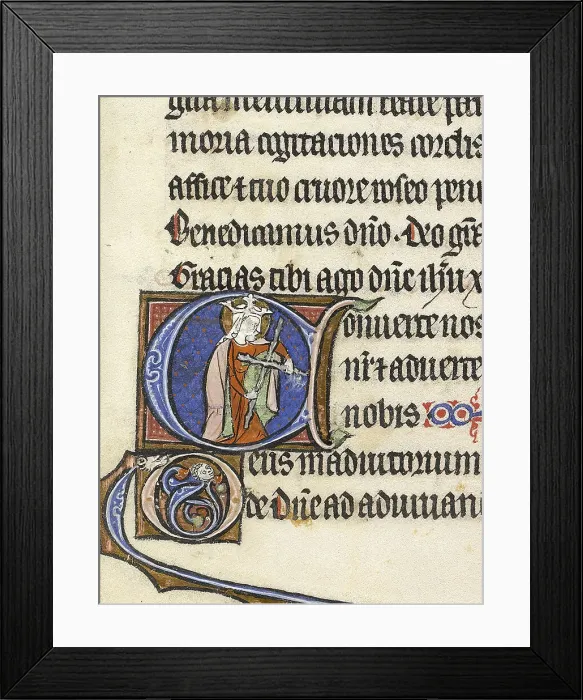 moria cogitaciones cordis
affice ⁊ tuo cruore roseo
Benedicamus dño. Deo gr̃a
Gracias tibi ago dñe ihũ x
Conuerte nos
nr̃ ⁊ aduerte
nobis
Deus in adiutorium
de Dñe ad adiuuan